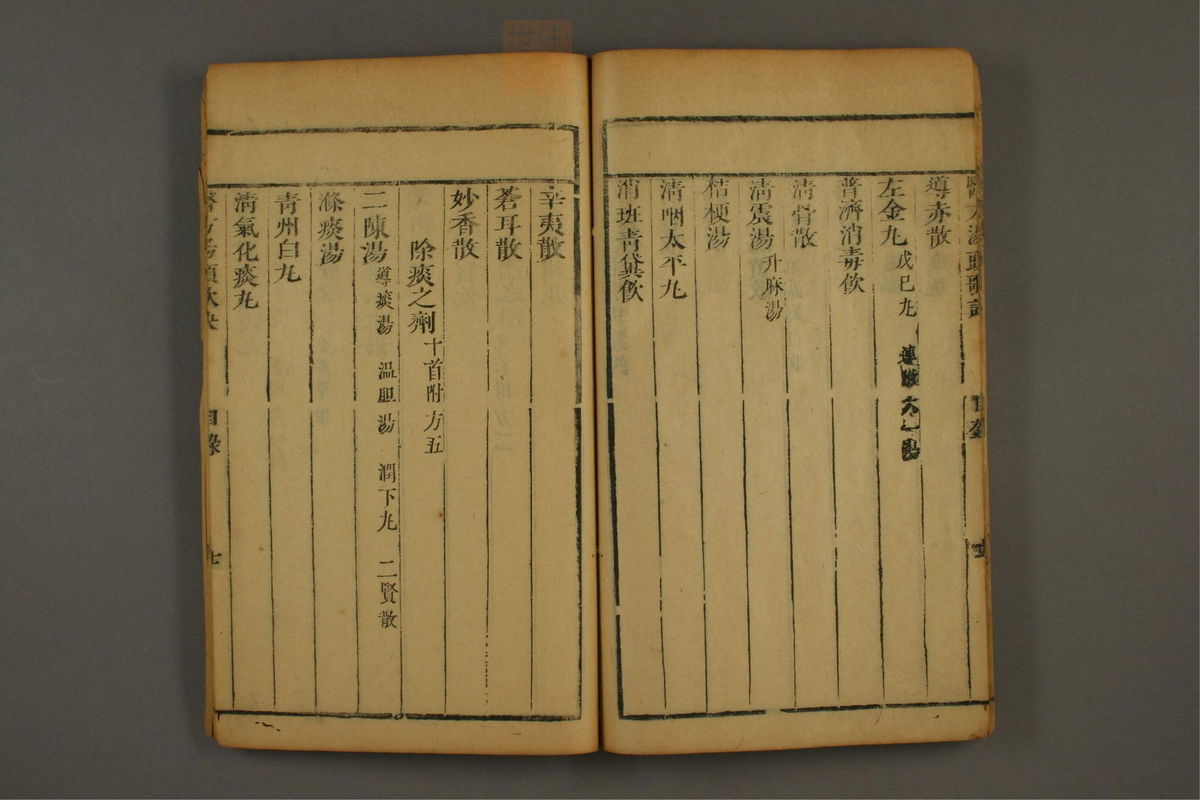 醫方湯頭歌訣 目錄
導赤散
左金丸 戊己丸 連附六一湯
普濟消毒飲
清骨散
清震湯 升麻湯
桔梗湯
清咽太平丸
消班青黛飲
辛夷散
蒼耳散
妙香散
除痰之劑 十首附方五
二陳湯 導痰湯 温胆湯 潤下丸 二賢散
滌痰湯
青州白丸
清氣化痰丸
醫方湯頭歌訣 目錄 七